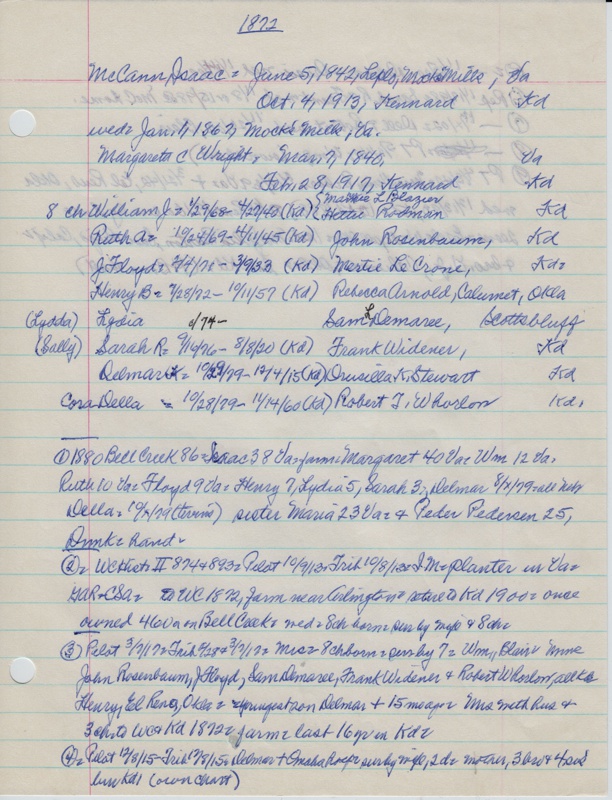 1872
McCann, Isaac = June 5, 1842, Mocks Mills, Va
Oct, 4, 1913, Kennard Kd
wed = Jan, 1, 1867, Mocks Mills, Va.
Margareta C Wright = Mar, 7, 1840, Va
Feb, 28, 1917, Kennard Kd
8 ch William J = 1/29/68 - (Kd) { L Blazier
Hettie Rodman Kd
Ruth A = 10/24/69 - 4/11/45 (Kd) John Rosenbaum, Kd
J Floyd = - 3/9/33 (Kd) Mertie Le Crone, Kd =
Henry B = 7/28/72 - 10/11/57 (Kd) Rebecca Arnold, Calumet, Okla
(Lydda) Lydia /74 - Sam L Demaree, Scottsbluff
(Sally) Sarah R = 9/16/76 - 8/8/20 (Kd) Frank Widener, Kd
Delmar = 10/28/79 - 12/4/15 (Kd) Drusilla K. Stewart Kd
Cora Della = 10/28/79 - 11/14/60 (Kd) Robert T. Whorlow Kd,
① 1880 Bell Creek 86 = Isaac 38 Va = farm = Margaret 40 Va = Wm 12 Va =
Ruth 10 Va = Floyd 9 Va = Henry 7, Lydia 5, Sarah 3, Delmar = all Neb
Della = (twins) sister Maria 23 Va = & Peder Pedersen 25,
Dmk = hand =
② = WC Hist II 874 & 893 = Pilot 10/9/13 = Trib 10/8/13 = I M = planter in Va =
GAR = CSA = to WC 1872, farm near Arlington = retire to Kd 1900 = once
owned 460 a on Bell Creek = wed = 8 ch born = sur by wife & 8 ch =
③ Pilot 3/7/17 = Trib = 3/7/17 = Mrs = 8 ch born = sur by 7 = Wm, Blair =
John Rosenbaum, J Floyd, Sam Demaree, Frank Widener & Robert Whorlow, all Kd
Henry, El Reno, Okla = youngest son Delmar + 15 mos ago = Mrs with hus &
3 ch to WC & Kd 1872 = farm = last 16 yr in Kd =
④ = Pilot 12/8/15 - Trib 12/8/15 = Delmar + Omaha Hosp = sur by wife, 2 d = mother, 3 bro & 4 sis
bur Kd 1 (own chart)